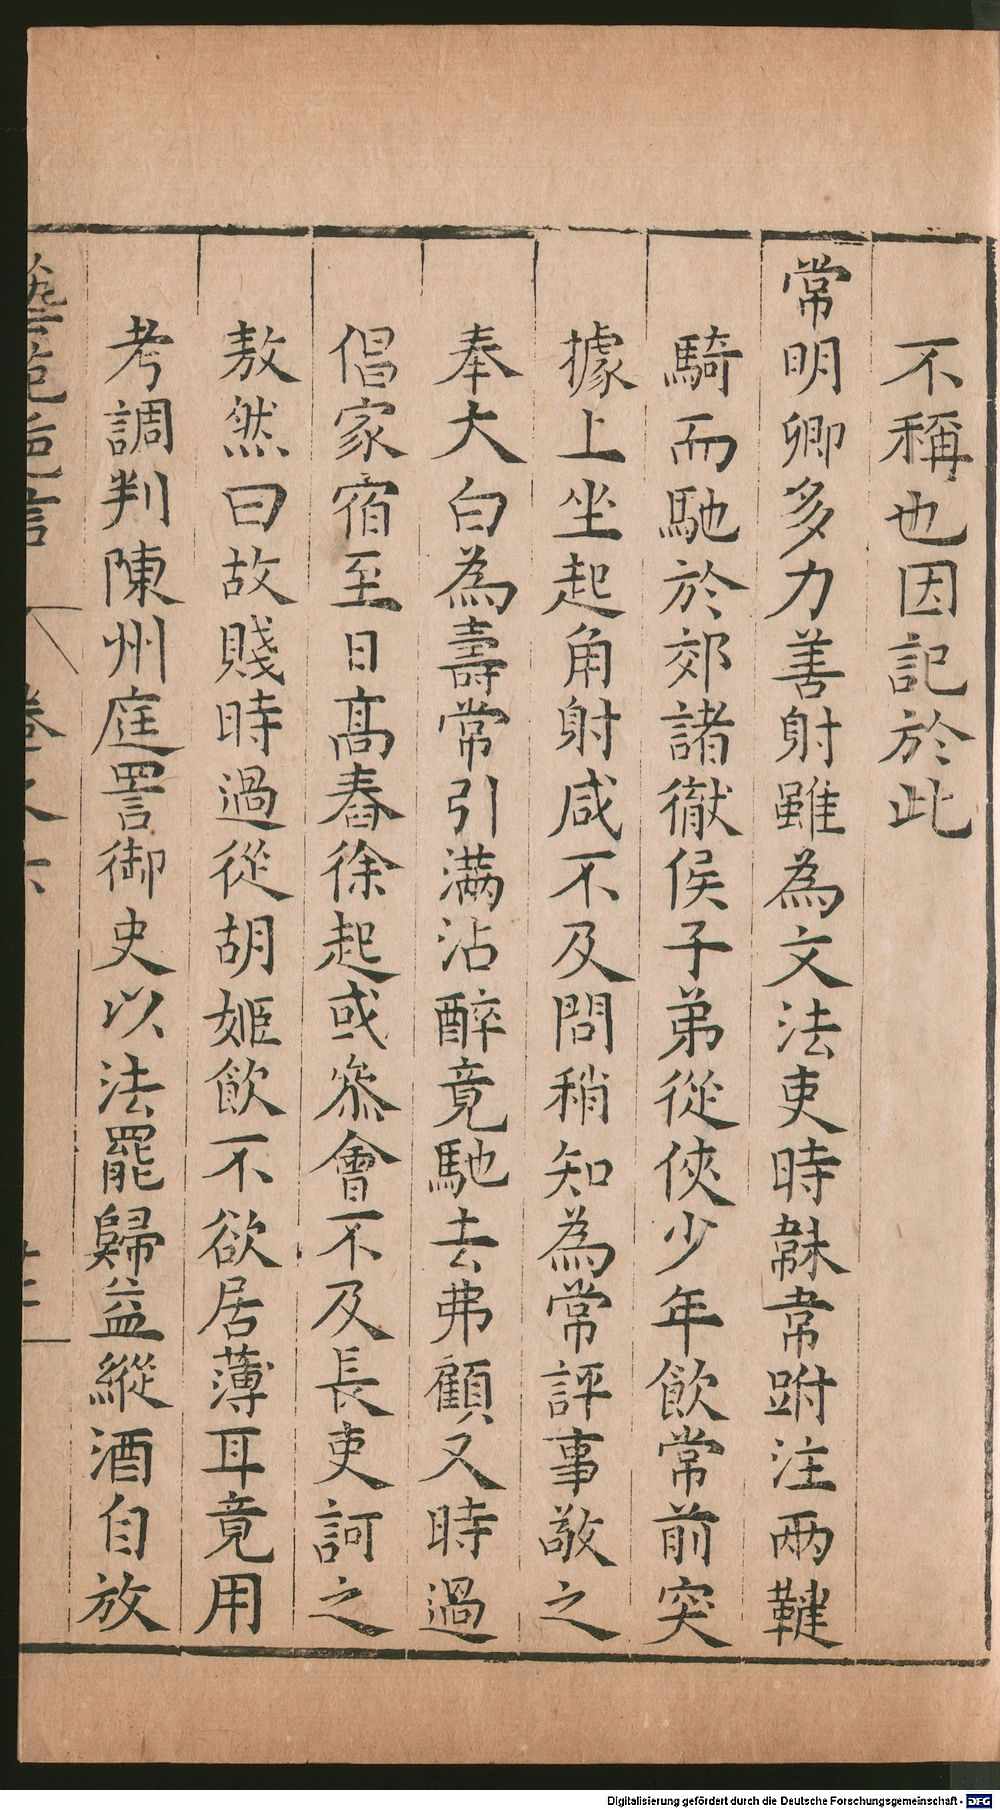 不稱也因記於此
常明卿多力善射雖為文法吏時韎韋跗注兩鞬
騎而馳於郊諸徹侯子弟從俠少年飲常前突
據上坐起角射咸不及問稍知為常評事敬之
奉大白為壽常引滿沾醉竟馳去弗顧又時過
倡家宿至日高舂徐起或叅會不及長吏訶之
敖然曰故賤時過從胡姬飲不欲居薄耳竟用
考調判陳州庭詈御史以法罷歸益縱酒自放
藝苑卮言
卷之六
Digitalisierung gefördert durch die Deutsche Forschungsgemeinschaft - DFG